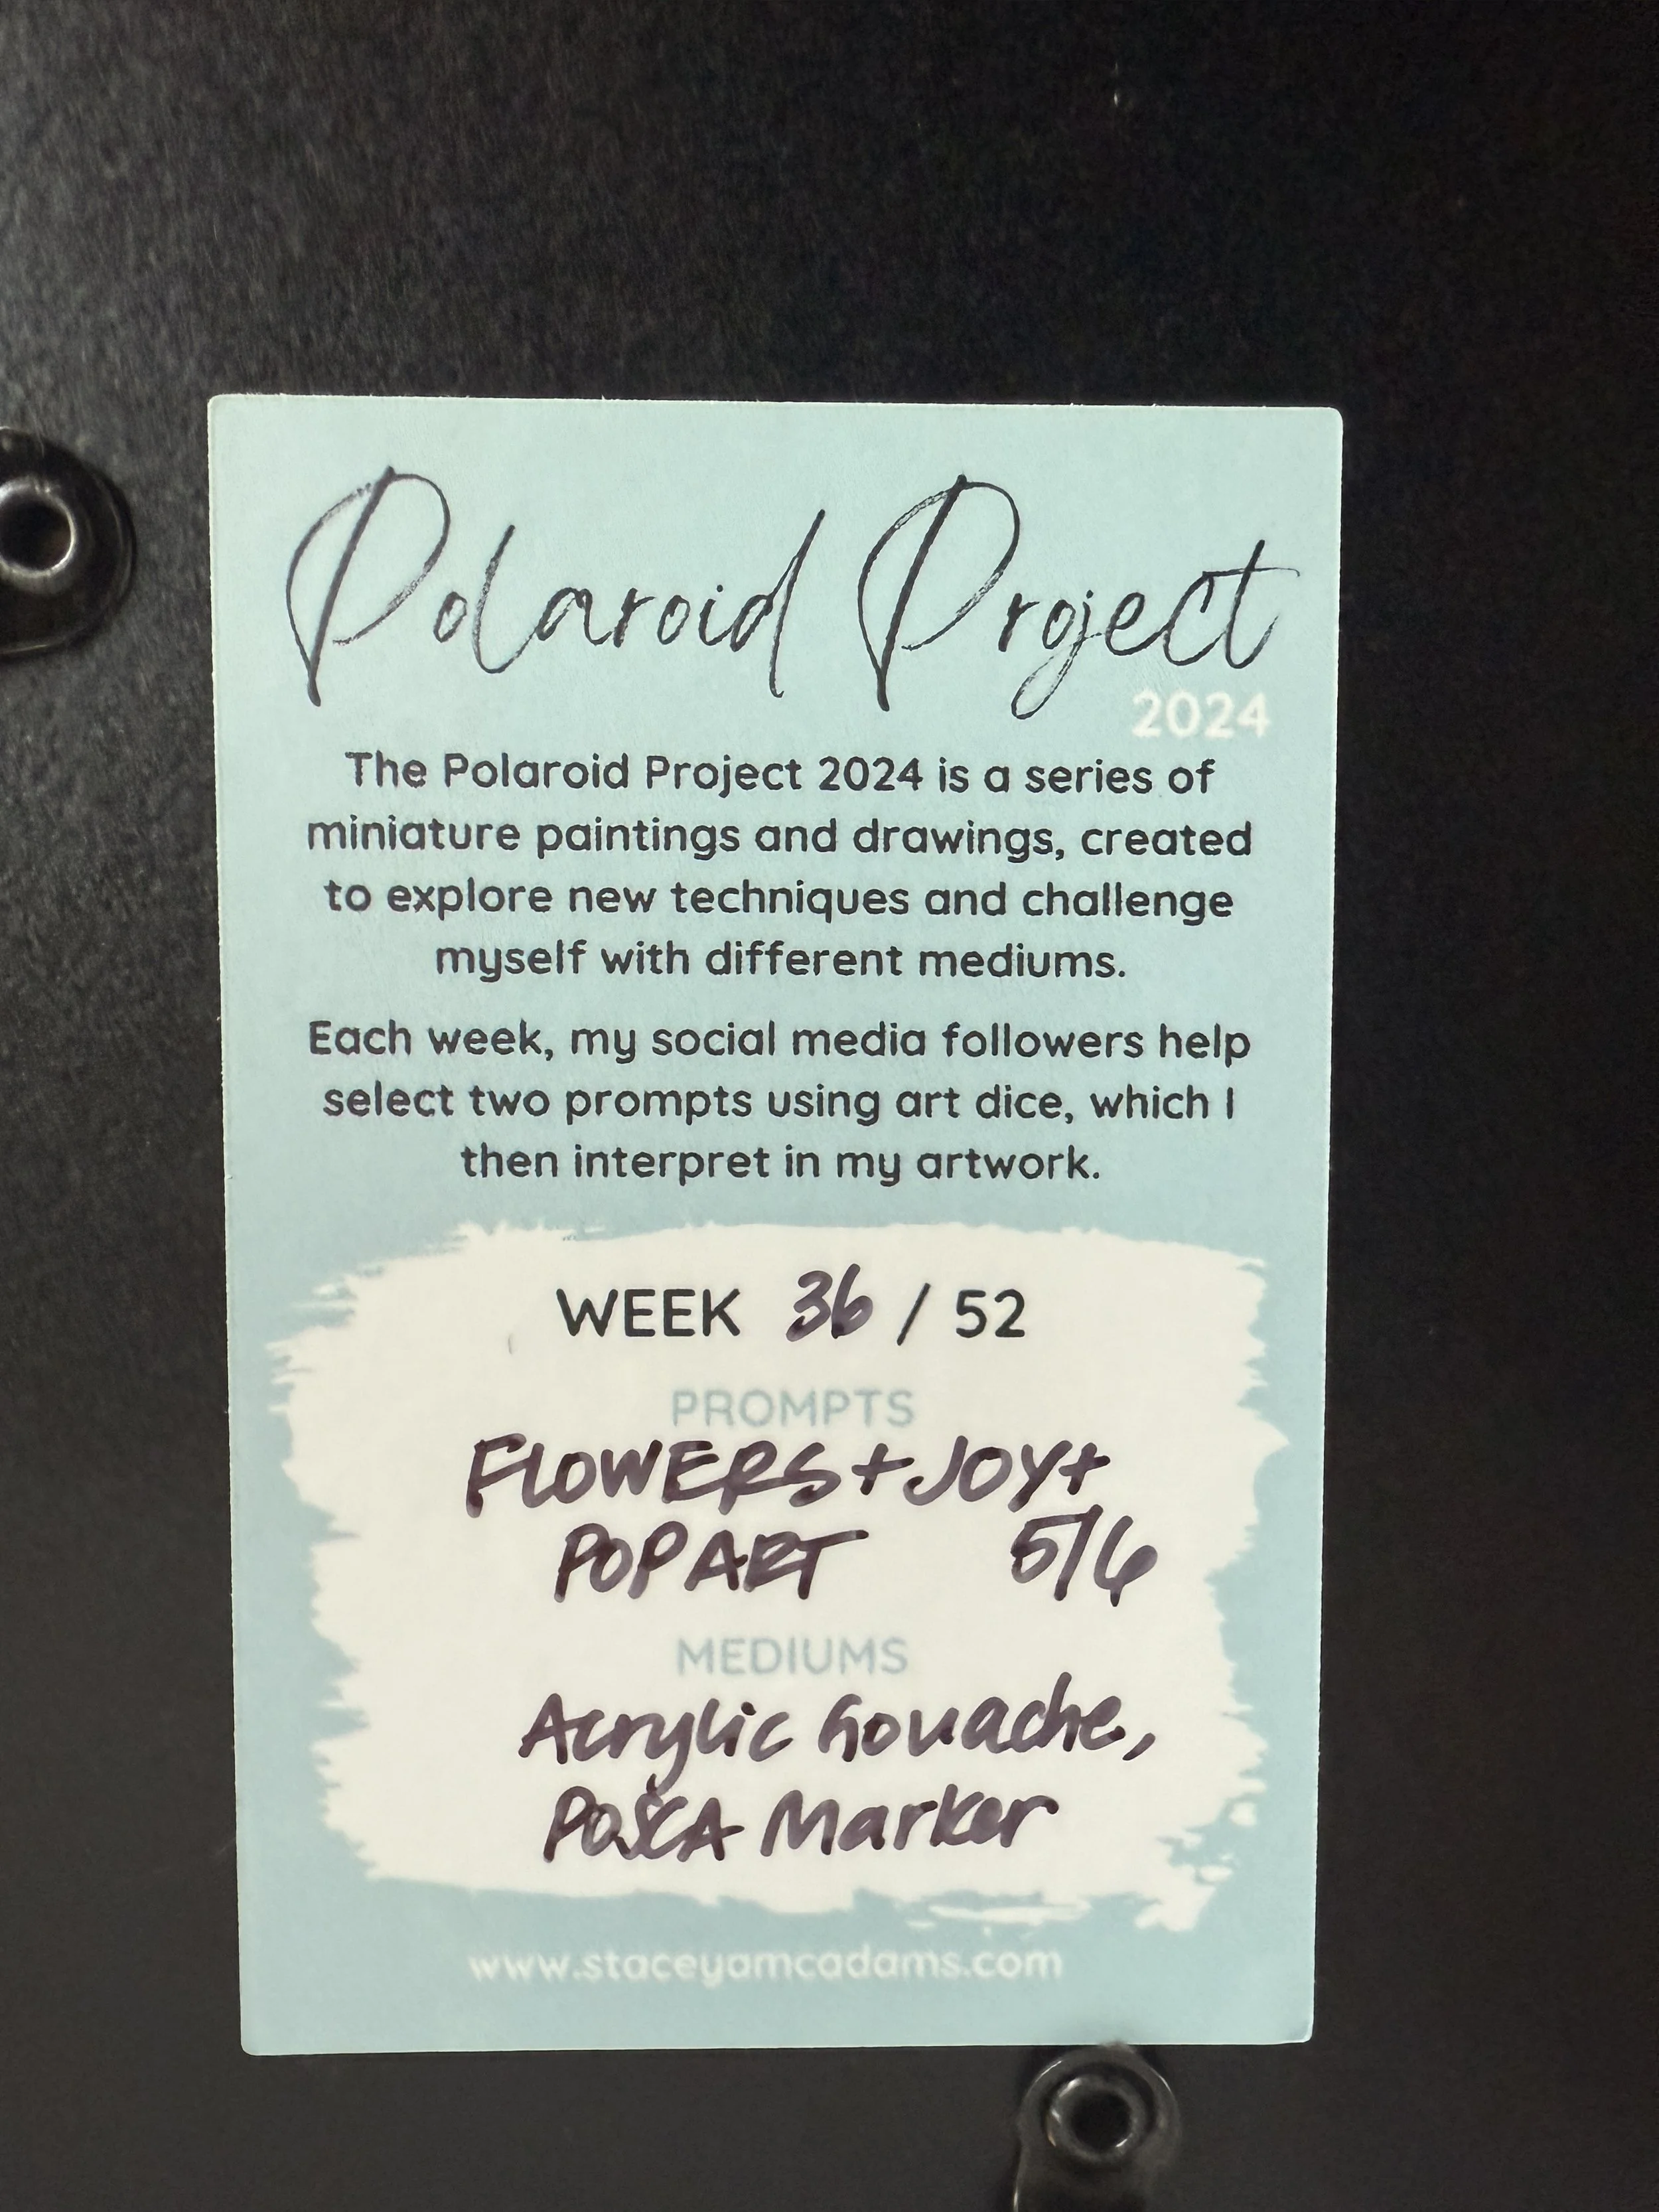 Polaroid Project
2024
The Polaroid Project 2024 is a series of
miniature paintings and drawings, created
to explore new techniques and challenge
myself with different mediums.
Each week, my social media followers help
select two prompts using art dice, which I
then interpret in my artwork.
WEEK 36 / 52
PROMPTS
FLOWERS + JOY +
POP ART 5/6
MEDIUMS
Acrylic Gouache,
POSCA Marker
www.staceyamcadams.com